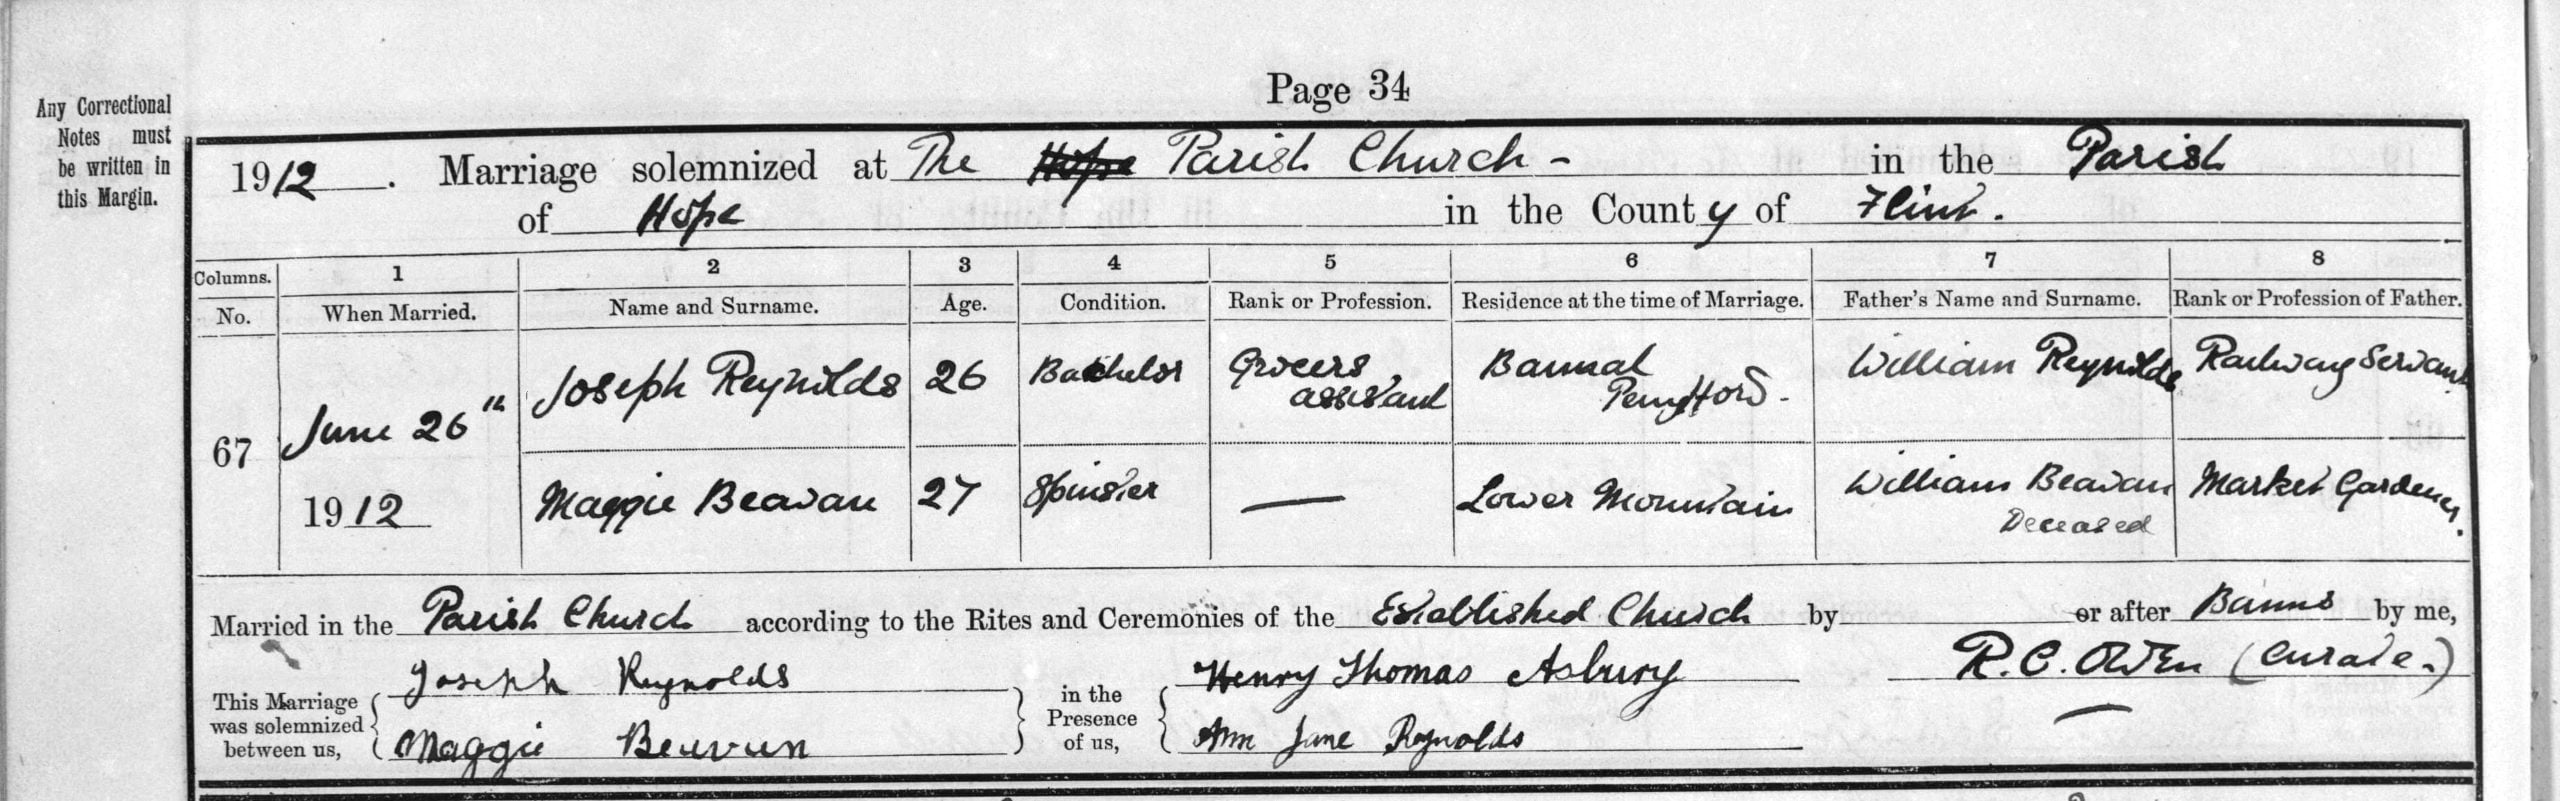 Page 34
Any Correctional
Notes must
be written in
this Margin.
1912. Marriage solemnized at The Hope Parish Church - in the Parish
of Hope in the County of Flint.
Columns. 1 2 3 4 5 6 7 8
No. When Married. Name and Surname. Age. Condition. Rank or Profession. Residence at the time of Marriage. Father's Name and Surname. Rank or Profession of Father.
67 June 26th 1912
Joseph Reynolds 26 Bachelor Grocers assistant Bannal Penyffordd. William Reynolds Railway Servant
Maggie Beavan 27 Spinster — Lower Mountain William Beavan Deceased Market Gardener.
Married in the Parish Church according to the Rites and Ceremonies of the Established Church by or after Banns by me,
This Marriage was solemnized between us,
Joseph Reynolds
Maggie Beavan
in the Presence of us,
Henry Thomas Asbury
Ann Jane Reynolds
R. C. Owen (Curate.)